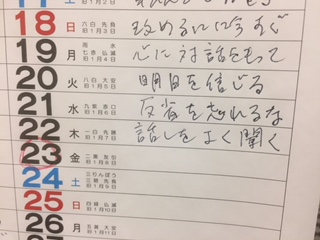 18 日 六白 先負 旧1月3日
19 月 雨水 七赤 仏滅 旧1月4日 心に対話をもって
20 火 八白 大安 旧1月5日 明日を信じる
21 水 九紫 赤口 旧1月6日 反省を忘れるな
22 木 一白 先勝 旧1月7日 話しをよく聞く
23 金 二黒 友引 旧1月8日
24 土 三りんぼう 三碧 先負 旧1月9日
25 日 四緑 仏滅 旧1月10日
26 月 五黄 大安 旧1月11日